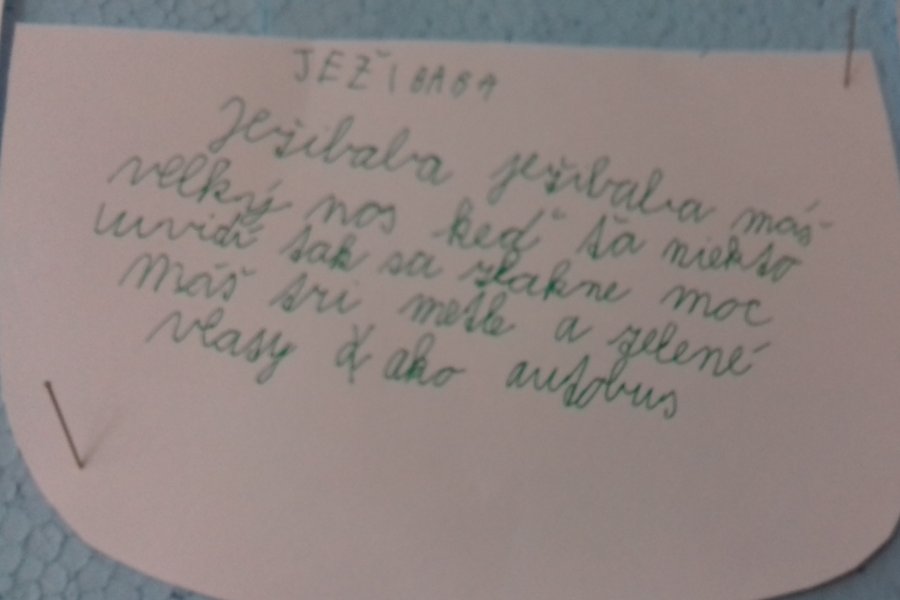 JEŽIBABA
Ježibaba ježibaba máš
velký nos keď ťa niekto
uvidí tak sa zlakne moc
Máš tri metle a zelené
vlasy ako autobus